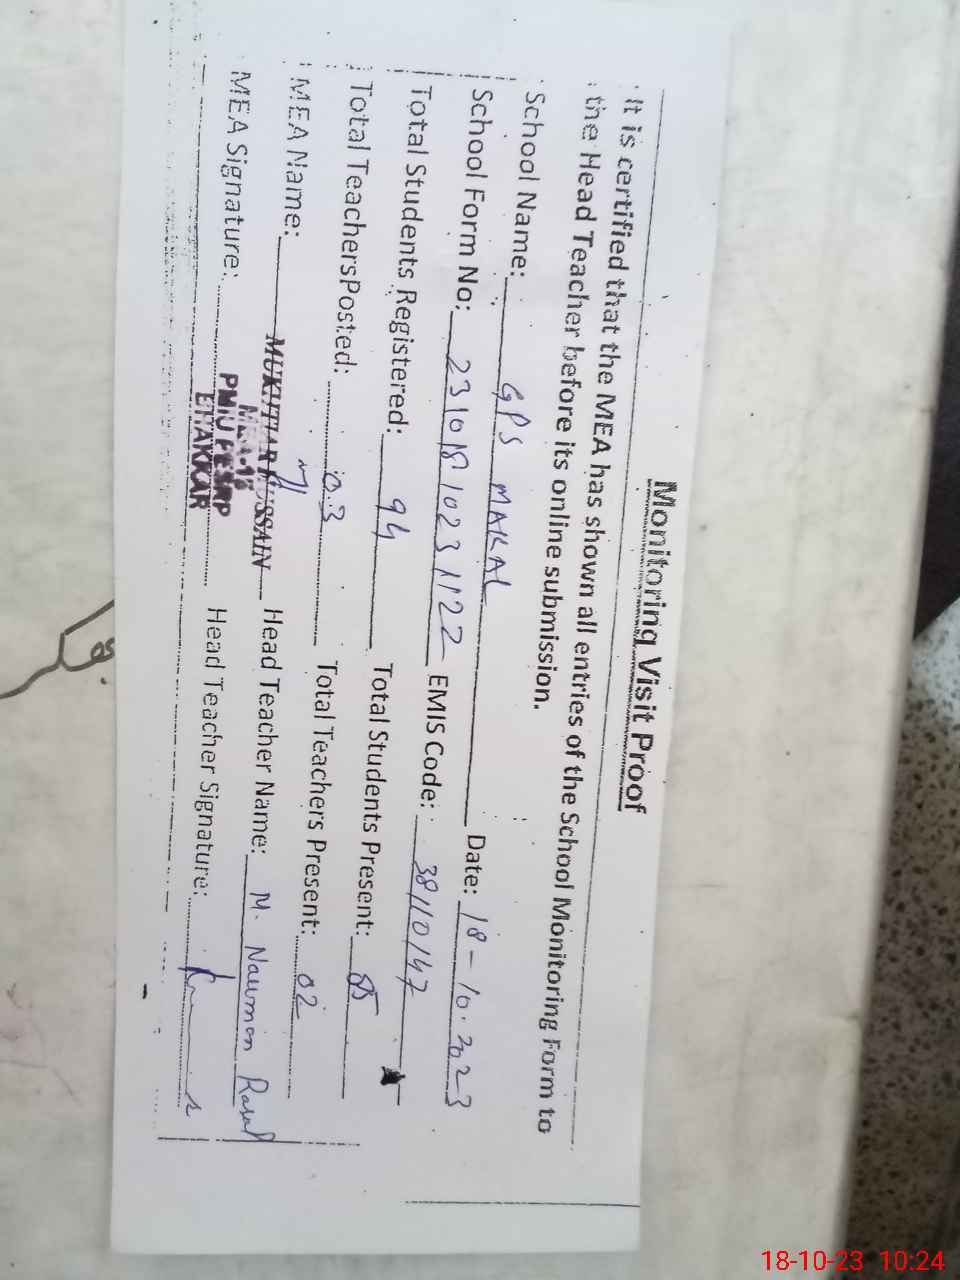 Monitoring Visit Proof
It is certified that the MEA has shown all entries of the School Monitoring Form to
the Head Teacher before its online submission.
School Name: GPS MAKAL Date: 18-10-2023
School Form No: 231018 1023 1122 EMIS Code: 38110147
Total Students Registered: 94 Total Students Present: 85
Total Teachers Posted: 03 Total Teachers Present: 02
MEA Name: MUKHTAR HUSSAIN Head Teacher Name: M. Nauman
MEA Signature: Head Teacher Signature:
PMIU PESRP
18-10-23 10:24